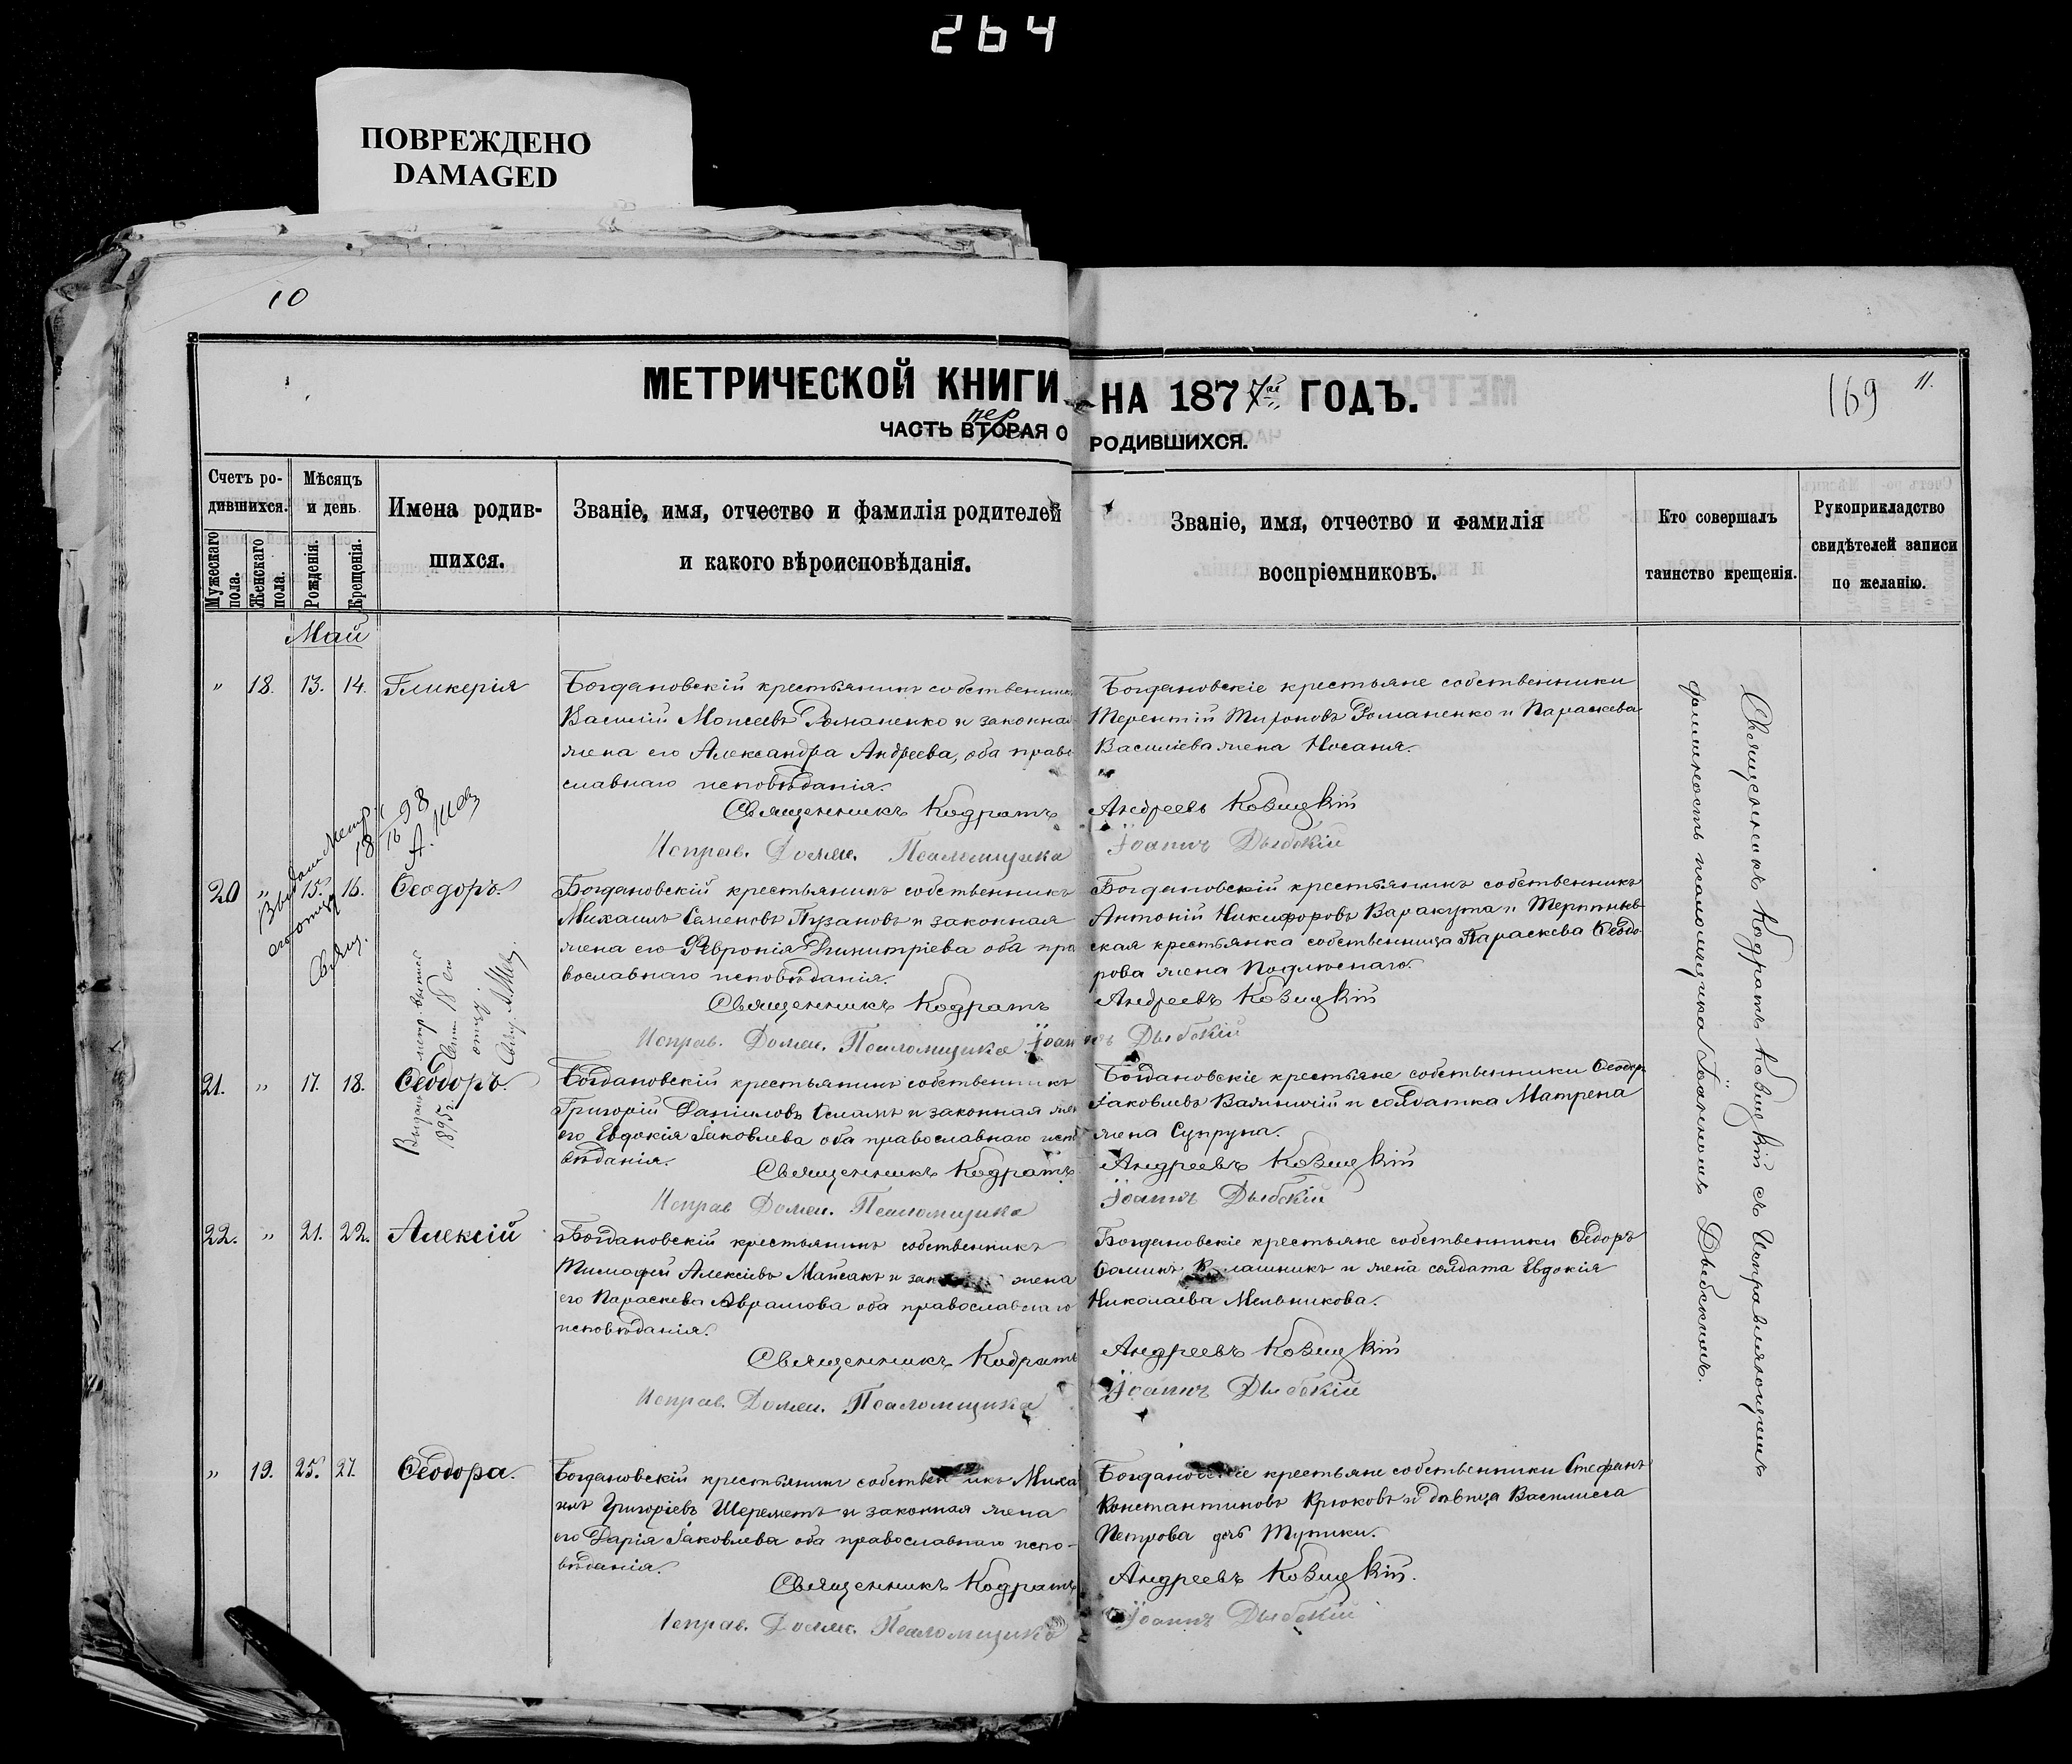 264
ПОВРЕЖДЕНО
DAMAGED
10
МЕТРИЧЕСКОЙ КНИГИ НА 1877 ГОДЪ.
169
11.
пер
ЧАСТЬ ВТОРАЯ О РОДИВШИХСЯ.
Счетъ ро-
дившихся.
Мужескаго пола.
Женскаго пола.
Мѣсяцъ
и день
Рожденія.
Крещенія.
Имена родив-
шихся.
Званіе, имя, отчество и фамилія родителей
и какого вѣроисповѣданія.
Званіе, имя, отчество и фамилія
воспріемниковъ.
Кто совершалъ
таинство крещенія.
Рукоприкладство
свидѣтелей записи
по желанію.
Май
" 18. 13. 14. Гликерія
Богдановскій крестьянинъ собственникъ
Василій Моисеевъ Романенко и законная
жена его Александра Андреева, оба право
славнаго исповѣданія.
Священникъ Кодратъ
Исправ. Должн. Псаломщика
Богдановскіе крестьяне собственники
Терентій Романенко и Параскева
Василіева жена Носаня.
Андреевъ Ковицкій
Іоаннъ Дыбскій
20 " 15. 16. Ѳеодоръ.
Богдановскій крестьянинъ собственникъ
Михаилъ Семеновъ Пузановъ и законная
жена его Февронія Димитріева оба пра
вославнаго исповѣданія.
Священникъ Кодратъ
Исправ. Должн. Псаломщика Іоаннъ Дыбскій
Богдановскій крестьянинъ собственникъ
Антоній Никифоровъ Варакута и
ская крестьянка собственница Параскева Ѳеодо-
рова жена
Андреевъ Ковицкій
21. " 17. 18. Ѳеодоръ.
Богдановскій крестьянинъ собственникъ
Григорій Даніиловъ и законная жена
его Евдокія Іаковлева оба православнаго испо
вѣданія.
Священникъ Кодратъ
Исправ Должн. Псаломщика
Богдановскіе крестьяне собственники Ѳеодоръ
Іаковлевъ и солдатка Матрена
жена Супруна.
Андреевъ Ковицкій
Іоаннъ Дыбскій
22. " 21. 22. Алексій
Богдановскій крестьянинъ собственникъ
Тимофей Алексіевъ Майсакъ и жена
его Параскева Аврамова оба православнаго
исповѣданія.
Священникъ Кодратъ
Исправ. Должн. Псаломщика
Богдановскіе крестьяне собственники Ѳедоръ
и жена солдата Евдокія
Николаева Мельникова.
Андреевъ Ковицкій
Іоаннъ Дыбскій
" 19. 25. 27. Ѳеодора.
Богдановскій крестьянинъ собственникъ Миха
илъ Григоріевъ Шереметъ и законная жена
его Дарія Іаковлева оба православнаго испо-
вѣданія.
Священникъ Кодратъ
Исправ. Должн. Псаломщика
Богдановскіе крестьяне собственники Стефанъ
Константиновъ Крюковъ и дѣвица Василисса
Петрова дочь Тупики.
Андреевъ Ковицкій.
Іоаннъ Дыбскій
Священникъ Кодратъ Ковицкій съ Исправляющимъ
должность псаломщика Іоанномъ Дыбскимъ.